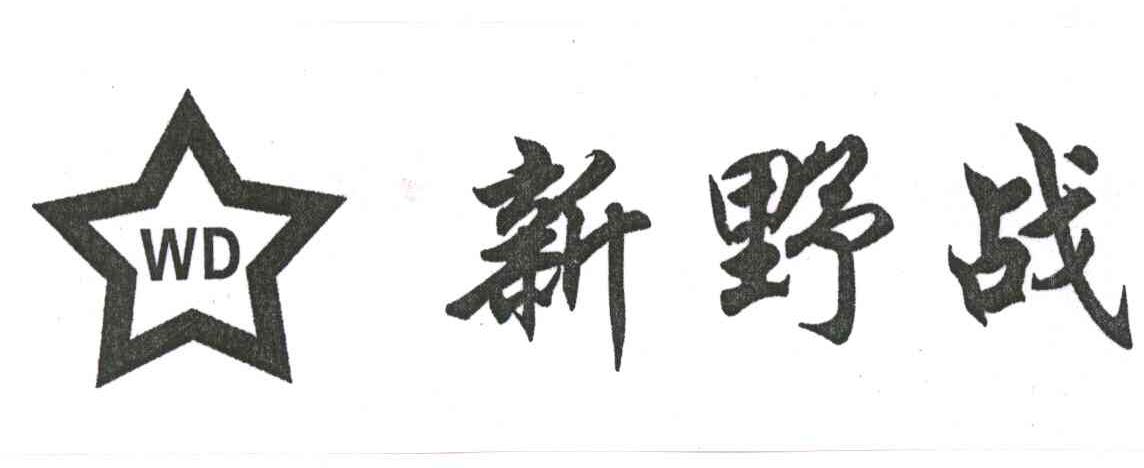 WD 新野战